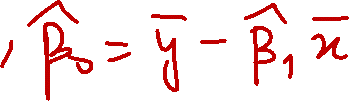 , β̂₀ = ȳ − β̂₁ x̄